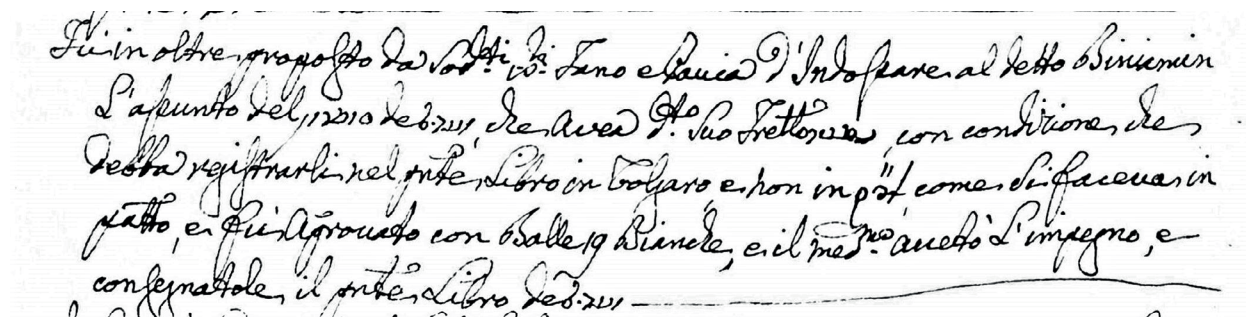 Fù in oltre proposto da Sod.ti ss.i Fano e Pavia d'Indossare al detto Biniamin
L'assunto del che avea d.to suo Fratello con condizione che
debba registrarli nel pnte Libro in Volgare e non in come si faceva in
e fù Aprovato con Balle 19 Bianche, e il med.mo accetò L'impegno, e
consegnatole il pnte Libro